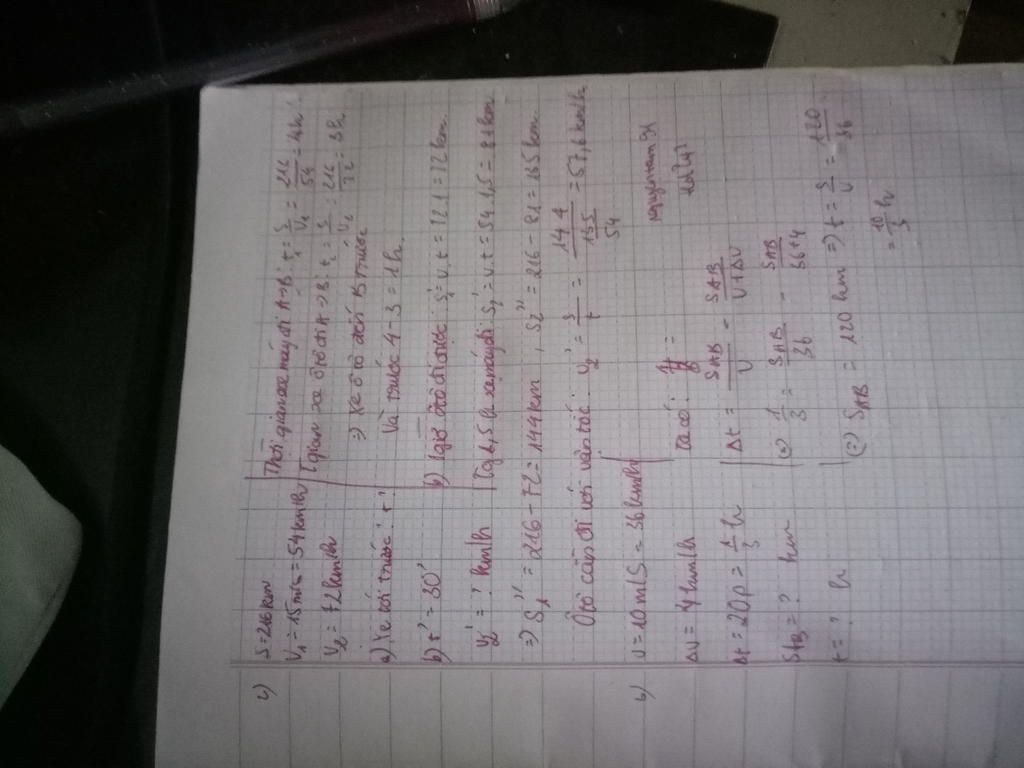 c) S=216km
V₁=15m/s=54km/h
V₂= 72km/h
a) Xe tới trước? t?
b) t' = 30'
V₂' = ? km/h
Thời gian xe máy đi A→B: t₁ = S/V₁ = 216/54 = 4h
Tgian xe ôtô đi A→B: t₂ = S/V₂ = 216/72 = 3h
=) Xe ô tô đến B trước
Và trước 4-3=1h.
b) 1giờ ôtô đi được: S₁'=v.t=72.1=72km.
Tg 1,5h xe máy đi S₁'=v.t=54.1,5=81km
=) S₁'' = 216-72=144km , S₂''=216-81=135km.
Ôtô cần đi với vận tốc: v₂' = S/t = 144/(135/54) = 57,6km/h
b) v=10m/s=36km/h
Δv= 4km/h
Δt=20p= 1/3 h
S_AB=? km
t=? h
Ta có:
Δt = S_AB/v - S_AB/(v+Δv)
(=) 1/3 = S_AB/36 - S_AB/(36+4)
(=) S_AB = 120 km =) t = S/v = 120/36
= 10/3 h